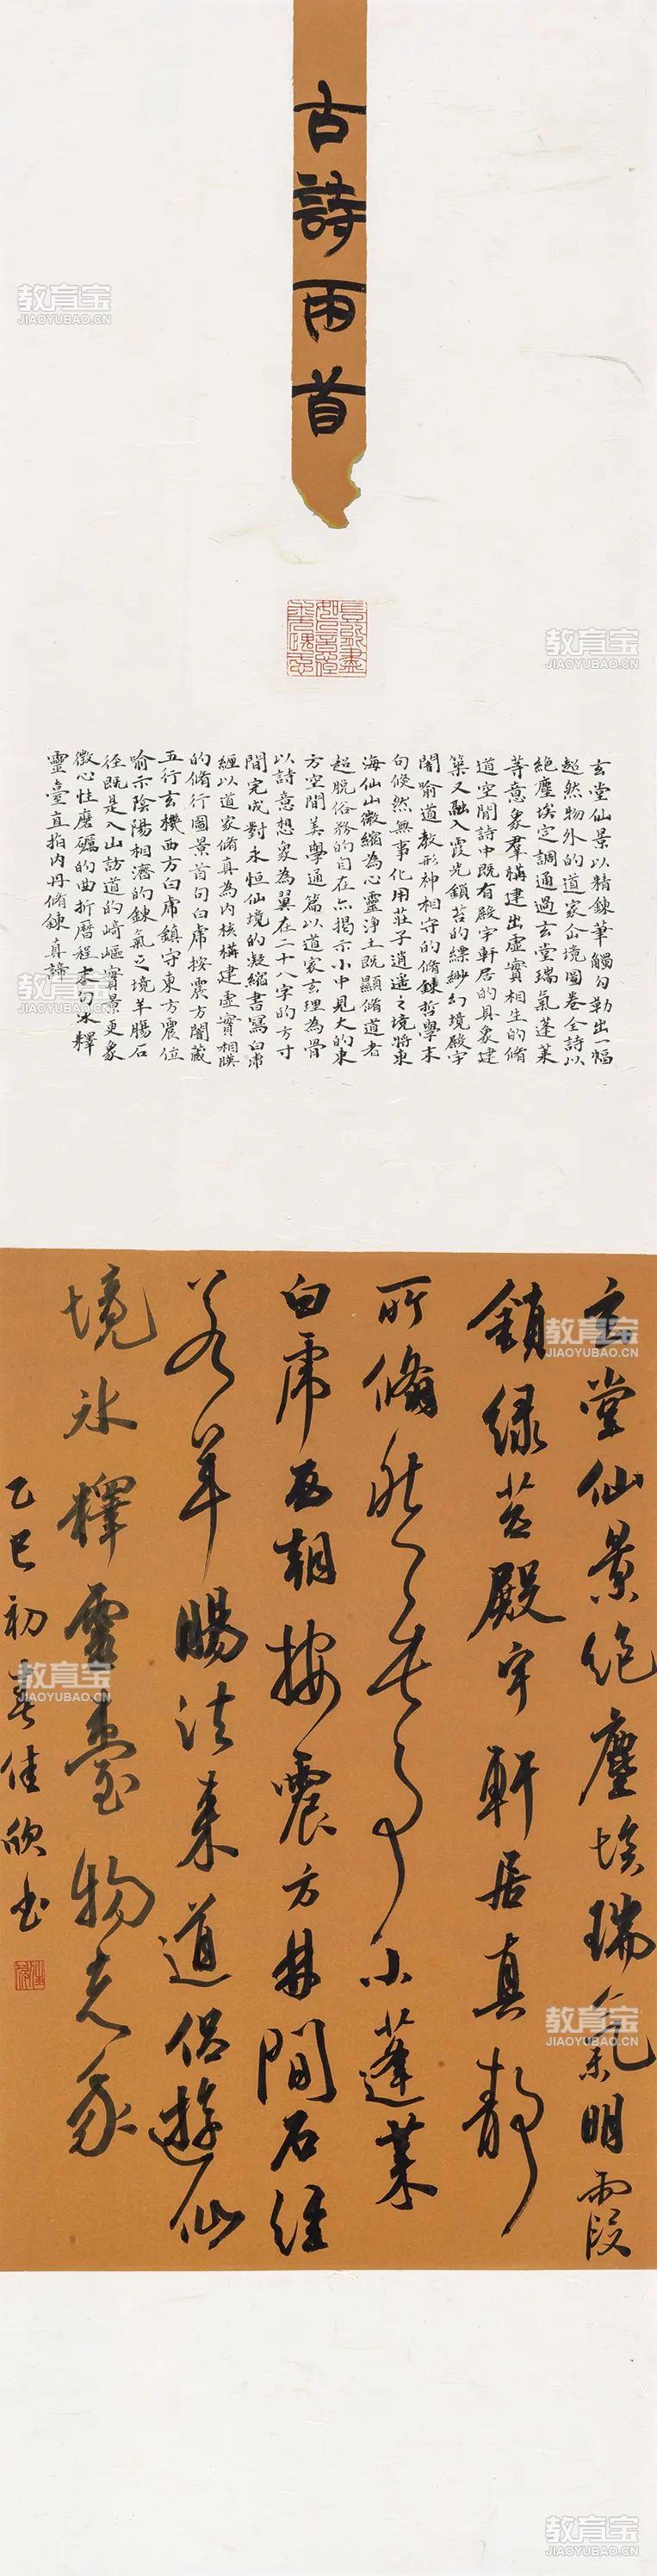 古詩兩首
玄堂仙景以精鍊筆觸勾勒出一幅
超然物外的道家仚境圖卷全詩以
絕塵埃定調通過玄堂瑞氣蓬萊
等意象羣構建出虛實相生的脩
道空間詩中既有殿宇軒居的具象建
築又融入霞光鎖苔的縹緲幻境殿宇
闇喻道教形神相守的脩鍊哲學末
句倏然無事化用莊子逍遥之境將東
海仙山微縮為心靈淨土既顯脩道者
超脫俗務的自在亦揭示小中見大的東
方空間美學通篇以道家玄理為骨
以詩意想象為翼在二十八字的方寸
間完成對永恒仙境的凝縮書寫白虎
經以道家脩真為内核構建虛實相
的脩行圖景首句白虎按震方闇藏
五行玄機西方白虎鎮守東方震位
喻示陰陽相濟的鍊氣之境羊腸石
徑既是入山訪道的崎嶇實景更象
徵心性磨礪的曲折曆程末句冰釋
靈臺直指内丹脩鍊真諦
玄堂仙景絕塵埃瑞氣明霞
鎖緑苔殿宇軒居真靜
所翛然無事小蓬萊
白虎西朝按震方林間石徑
若羊腸法来道侣遊仙
境冰釋靈臺物危象
乙巳初春佳欣书
教育宝
JIAOYUBAO.CN
教育宝
JIAOYUBAO.CN
教育宝
JIAOYUBAO.CN
教育宝
JIAOYUBAO.CN
教育宝
JIAOYUBAO.CN
教育宝
JIAOYUBAO.CN
教育宝
JIAOYUBAO.CN